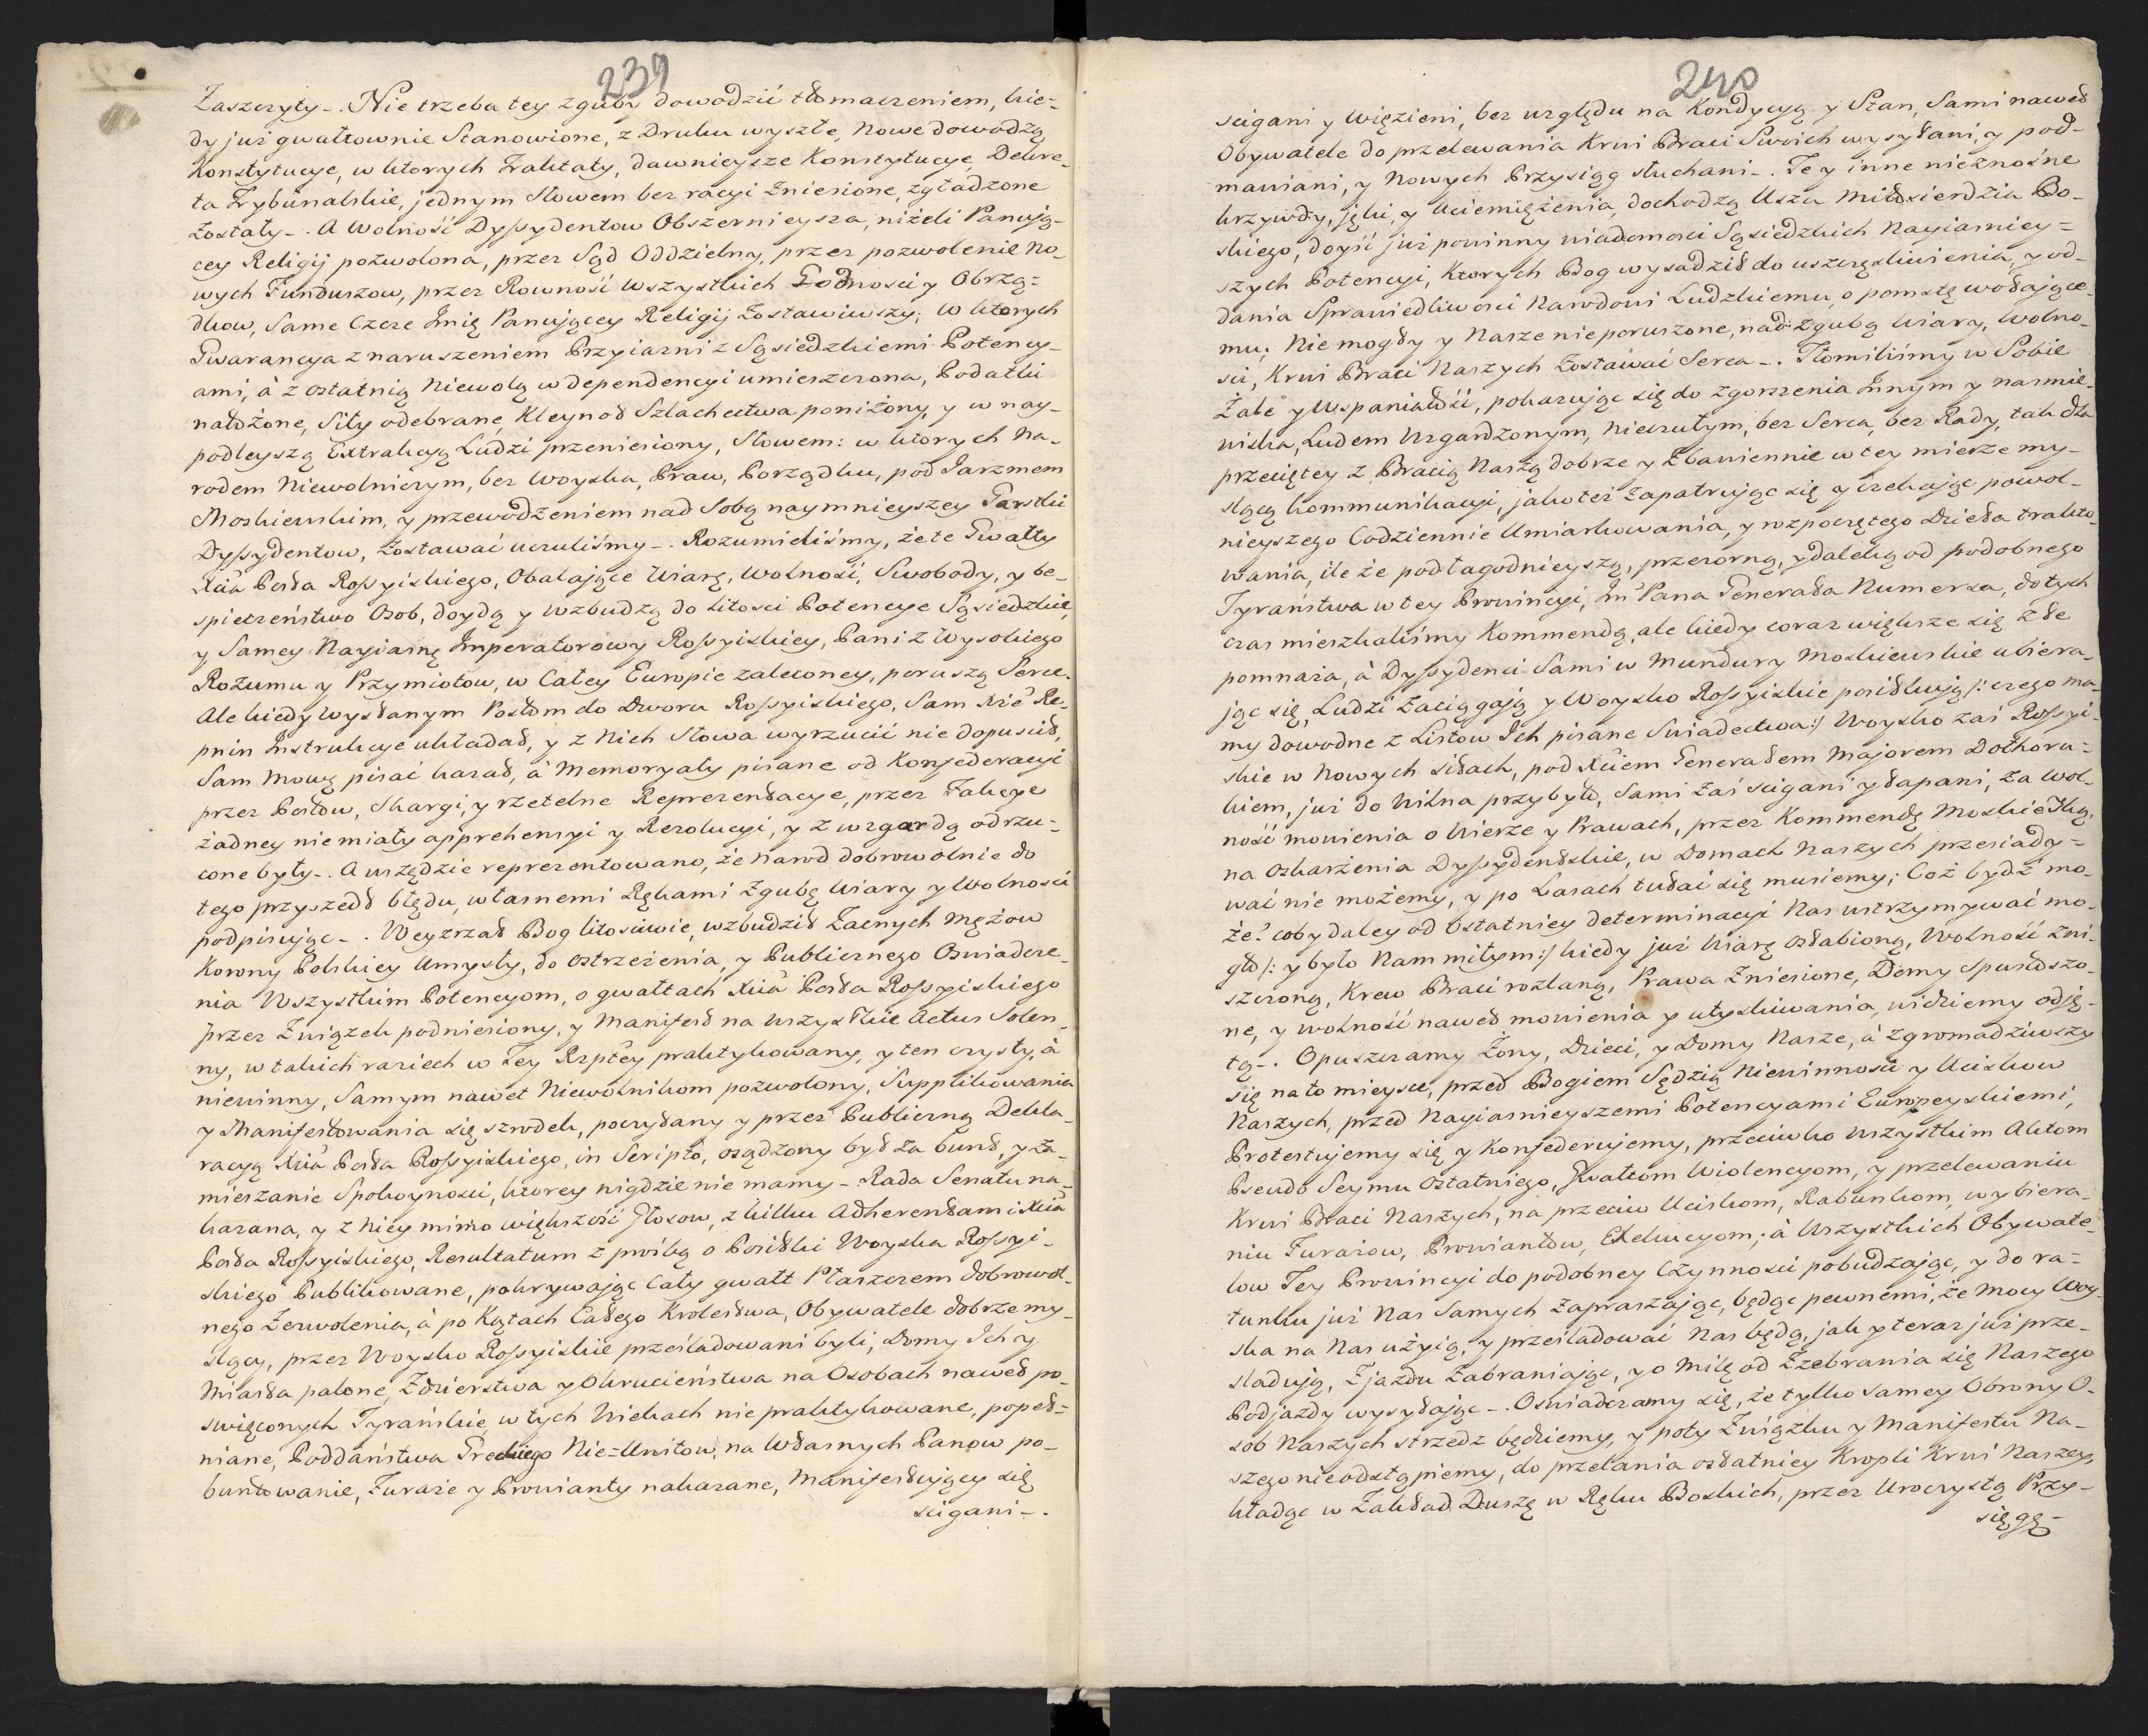 239
Zaszczyty -. Nie trzeba tey zguby dowodzić tłomaczeniem, kie=
dy już gwałtownie Stanowione, z Druku wyszłe, Nowe dowodzą
Konstytucye, w ktorych Traktaty, dawnieysze Konstytucye, Dekre-
ta Trybunalskie, jednym Słowem bez racyi Zniesione, zgładzone
Zostały -. A Wolność Dyssydentow Obszernieysza, niżeli Panują-
cey Religij pozwolona, przez Sąd Oddzielny, przez pozwolenie No-
wych Funduszow, przez Rowność Wszystkich Godności y Obrzą=
dkow, Same Czcze Imię Panującey Religij Zostawiwszy; W ktorych
Gwarancya z naruszeniem Przyiaźni z Sąsiedzkiemi Potency-
ami, à z ostatnią Niewolą w dependencyi umieszczona, Podatki
nałożone, Siły odebrane, Kleynot Szlachectwa poniżony, y w nay-
podleyszą Extrakcyą Ludzi przeniesiony, Słowem: w ktorych Na-
rodem Niewolniczym, bez Woyska, Praw, Porządku, pod Jarzmem
Moskiewskim, y przewodzeniem nad Sobą naymnieyszey Garstki
Dyssydentow, Zostawać uczuliśmy -. Rozumieliśmy, że te Gwałty
Xcia Posła Rossyiskiego, Obalające Wiarę, Wolność, Swobody, y be-
spieczeństwo Osob, doydą y Wzbudzą do Litości Potencye Sąsiedzkie,
y Samey Nayiasnę Imperatorowy Rossyiskiey, Pani z Wysokiego
Rozumu y Przymiotow, w Całey Europie zaleconey, poruszą Serce.
Ale kiedy Wysłanym Posłom do Dworu Rossyiskiego, Sam Xże Re-
pnin Instrukcye układał, y z Nich Słowa wyrzucić nie dopuścił,
Sam Mowę pisać kazał, à Memoryały pisane od Konfederacyi
przez Posłow, Skargi, y rzetelne Reprezentacye, przez Fakcye
żadney nie miały apprehensyi y Rezolucyi, y z wzgardą odrzu=
cone były -. A wszędzie reprezentowano, że Narod dobrowolnie do
tego przyszedł błędu, własnemi Rękami Zgubę Wiary y Wolności
podpisując -. Weyzrzał Bog litościwie, wzbudził Zacnych Mężow
Korony Polskiey Umysły, do ostrzeżenia, y Publicznego Oświadcze-
nia Wszystkim Potencyom, o gwałtach Xcia Posła Rossyiskiego
przez Związek podniesiony, y Manifest na Wszystkie Actus Solen-
ny, w takich raziech w Tey Rzptey praktykowany, y ten czysty, à
niewinny, Samym nawet Niewolnikom pozwolony, Supplikowania
y Manifestowania się szrodek, poczytany y przez Publiczną Dekla-
racyą Xcia Posła Rossyiskiego, in Scripto, osądzony był za bunt, y Za-
mieszanie Spokoyności, ktorey nigdzie nie mamy - Rada Senatu na-
kazana, y z Niey mimo większość Głosow, z kilku Adherentami Xcia
Posła Rossyiskiego, Resultatum z prośbą o Posiłki Woyska Rossyi-
skiego Publikowane, pokrywając Cały gwałt Płaszczem dobrowol-
nego Zezwolenia, à po Kątach Całego Krolestwa, Obywatele dobrze my-
slący, przez Woysko Rossyiskie prześladowani byli, Domy Ich y
Miasta palone, Zdzierstwa y Okrucieństwa na Osobach nawet po-
święconych Tyrańskie, w tych Wiekach nie praktykowane, popeł=
niane, Poddaństwa Greckiego Nie=Unitow, na Własnych Panow po-
buntowanie, Furaże y Prowianty nakazane, Manifestujący się
scigani -.
240
scigani y więzieni, bez względu na Kondycyą y Stan, Sami nawet
Obywatele do przelewania Krwi Braci Swoich wysyłani, y pod-
mawiani, y Nowych Przysiąg słuchani -. Te y inne nieznośne
krzywdy, jęki, y Uciemiężenia, dochodzą Usza Miłosierdzia Bo-
skiego, dojść już powinny wiadomości Sąsiedzkich Nayiasniey=
szych Potencyi, Ktorych Bog wysadził do uszczęśliwienia, y od-
dania Sprawiedliwości Narodowi Ludzkiemu, o pomstę wołające-
mu; Nie mogły y Nasze nieporuszone, nad Zgubą Wiary, Wolno-
ści, Krwi Braci Naszych Zostawać Serca -. Tłomiliśmy w Sobie
Żale y Wspaniałość, pokazując się do Zgorszenia Innym y nasmie-
wiska, Ludem Wzgardzonym, Nieczułym, bez Serca, bez Rady, tak dla
przeciętey z Bracią Naszą dobrze y Zbawiennie w tey mierze my-
slącą kommunikacyi, jako też zapatrując się y czekając powol-
nieyszego Codziennie Umiarkowania, y rozpoczętego Dzieła trakto-
wania, ile że pod łagodnieyszą, przezorną, y daleką od podobnego
Tyraństwa w tey Prowincyi, Im Pana Generała Numersa, do tych
czas mieszkaliśmy Kommendą, ale kiedy coraz większe się złe
pomnaża, à Dyssydenci Sami w Mundury Moskiewskie ubiera-
jąc się, Ludzi Zaciągają y Woysko Rossyiskie posiłkują /: czego ma-
my dowodne z Listow Ich pisane Swiadectwa :/ Woysko zaś Rossyi-
skie w Nowych siłach, pod Xciem Generałem Majorem Dołhoru=
kiem, już do Wilna przybyło, Sami zaś scigani y łapani, za Wol-
ność mowienia o Wierze y Prawach, przez Kommendę Moskiewską,
na oskarżenia Dyssydentskie, w Domach Naszych przesiady=
wać nie możemy, y po Lasach tułać się musiemy; Coż bydź mo-
że? coby daley od Ostatniey determinacyi Nas wstrzymywać mo-
gło /: y było Nam miłym :/ kiedy już Wiarę osłabioną, Wolność Zni-
szczoną, Krew Braci rozlaną, Prawa Zniesione, Domy spustoszo-
ne, y wolność nawet mowienia y utyskiwania, widziemy odję-
tą -. Opuszczamy Żony, Dzieci, y Domy Nasze, à zgromadziwszy
się na to mieysce, przed Bogiem Sędzią Niewinności y Ucisków
Naszych, przed Nayiasnieyszemi Potencyami Europeyskiemi,
Protestujemy się y Konfederujemy, przeciwko Wszystkim Aktom
Pseudo Seymu Ostatniego, Gwałtom Wiolencyom, y przelewaniu
Krwi Braci Naszych, na przeciw Uciskom, Rabunkom, wybiera-
niu Furażow, Prowiantow, Exekucyom; à Wszystkich Obywate-
low Tey Prowincyi do podobney Czynności pobudzając, y do ra=
tunku już Nas Samych Zapraszając, będąc pewnemi, że Mocy Woy-
ska na Nas użyią, y prześladować Nas będą, jak y teraz już prze-
śladują, Zjazdu Zabraniając, y o Milę od Zzebrania się Naszego
Podjazdy wysyłając -. Oświadczamy się, że tylko samey Obrony O-
sob Naszych strzedz będziemy, y poty Związku y Manifestu Na-
szego nieodstąpiemy, do przelania ostatniey Kropli Krwi Naszey,
kładąc w Zakład Duszę w Ręku Boskich, przez Uroczystą Przy-
sięgę -